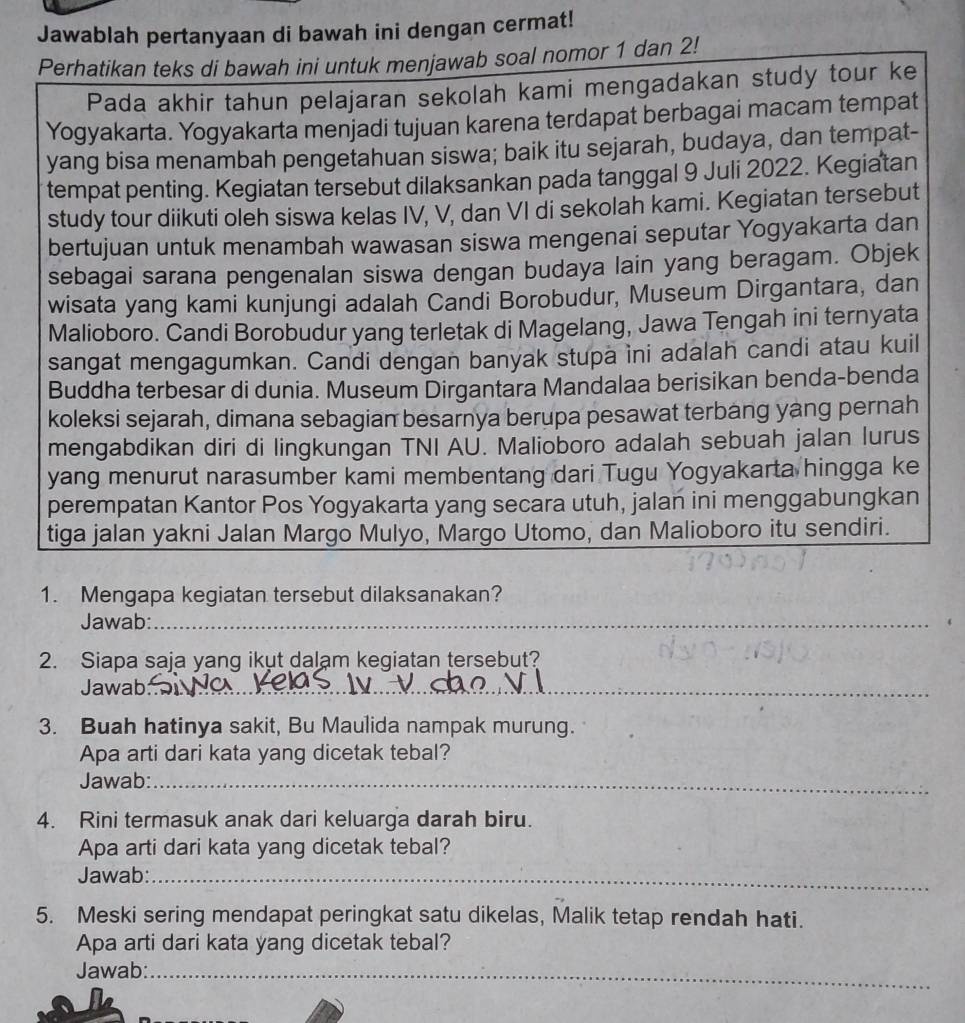 Jawablah pertanyaan di bawah ini dengan cermat!
Perhatikan teks di bawah ini untuk menjawab soal nomor 1 dan 2!
Pada akhir tahun pelajaran sekolah kami mengadakan study tour ke
Yogyakarta. Yogyakarta menjadi tujuan karena terdapat berbagai macam tempat
yang bisa menambah pengetahuan siswa; baik itu sejarah, budaya, dan tempat-
tempat penting. Kegiatan tersebut dilaksankan pada tanggal 9 Juli 2022. Kegiatan
study tour diikuti oleh siswa kelas IV, V, dan VI di sekolah kami. Kegiatan tersebut
bertujuan untuk menambah wawasan siswa mengenai seputar Yogyakarta dan
sebagai sarana pengenalan siswa dengan budaya lain yang beragam. Objek
wisata yang kami kunjungi adalah Candi Borobudur, Museum Dirgantara, dan
Malioboro. Candi Borobudur yang terletak di Magelang, Jawa Tengah ini ternyata
sangat mengagumkan. Candi dengan banyak stupa ini adalah candi atau kuil
Buddha terbesar di dunia. Museum Dirgantara Mandalaa berisikan benda-benda
koleksi sejarah, dimana sebagian besarnya berupa pesawat terbang yang pernah
mengabdikan diri di lingkungan TNI AU. Malioboro adalah sebuah jalan lurus
yang menurut narasumber kami membentang dari Tugu Yogyakarta hingga ke
perempatan Kantor Pos Yogyakarta yang secara utuh, jalan ini menggabungkan
tiga jalan yakni Jalan Margo Mulyo, Margo Utomo, dan Malioboro itu sendiri.
1. Mengapa kegiatan tersebut dilaksanakan?
Jawab:
2. Siapa saja yang ikut dalam kegiatan tersebut?
Jawab: Siwa Kelas IV V dan, VI
3. Buah hatinya sakit, Bu Maulida nampak murung.
Apa arti dari kata yang dicetak tebal?
Jawab:
4. Rini termasuk anak dari keluarga darah biru.
Apa arti dari kata yang dicetak tebal?
Jawab:
5. Meski sering mendapat peringkat satu dikelas, Malik tetap rendah hati.
Apa arti dari kata yang dicetak tebal?
Jawab: